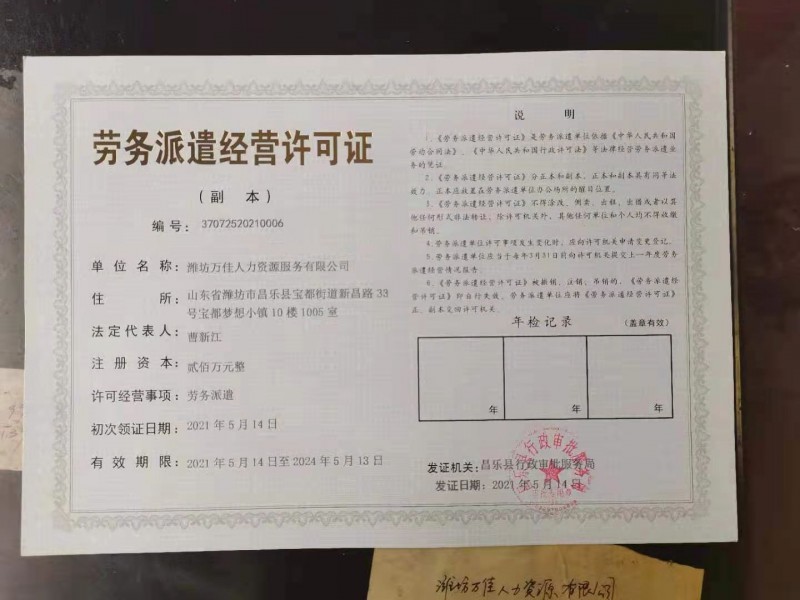 劳务派遣经营许可证
（副 本）
编号：37072520210006
单位名称：潍坊万佳人力资源服务有限公司
住 所：山东省潍坊市昌乐县宝都街道新昌路33
号宝都梦想小镇10楼1005室
法定代表人：曹新江
注册资本：贰佰万元整
许可经营事项：劳务派遣
初次领证日期：2021年5月14日
有效期限：2021年5月14日至2024年5月13日
说 明
1.《劳务派遣经营许可证》是劳务派遣单位依据《中华人民共和国
劳动合同法》、《中华人民共和国行政许可法》等法律经营劳务派遣业
务的凭证。
2.《劳务派遣经营许可证》分正本和副本，正本和副本具有同等法
效力。正本应放置在劳务派遣单位办公场所的醒目位置。
3.《劳务派遣经营许可证》不得涂改、倒卖、出租、出借或者以其
他任何形式非法转让。除许可机关外，其他任何单位和个人均不得收缴
和吊销。
4.劳务派遣单位许可事项发生变化时，应向许可机关申请变更登记。
5.劳务派遣单位应当于每年3月31日前向许可机关提交上一年度劳务
派遣经营情况报告。
6.《劳务派遣经营许可证》被撤销、注销、吊销的，《劳务派遣经
营许可证》即自行失效，劳务派遣单位应将《劳务派遣经营许可证》
正、副本交回许可机关。
年检记录 （盖章有效）
年 年 年
发证机关：昌乐县行政审批服务局
发证日期：2021年5月14日
潍坊万佳人力资源有限公司